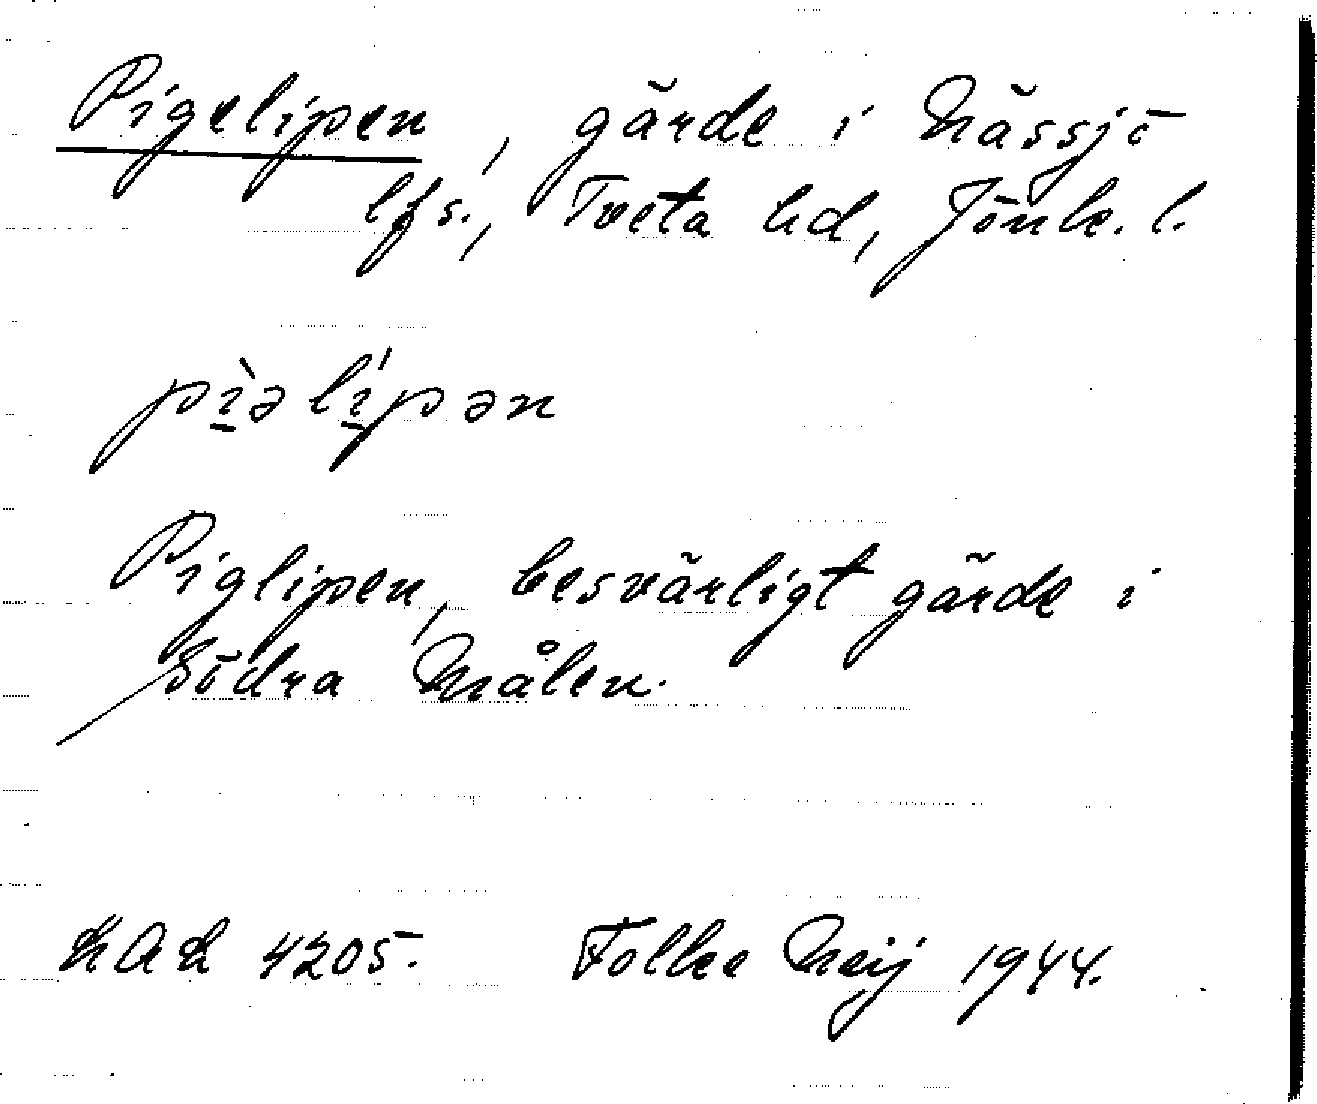 Pigelipen, gärde i Nässjö
lfs., Tveta hd, Jönk. l.
pìəlípən
Piglipen, besvärligt gärde i
Södra Målen.
4205. Folke Neij 1944.